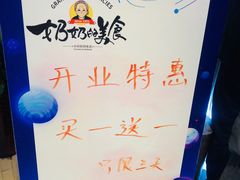 奶奶的美食
开业特惠
买一送一
只限三天